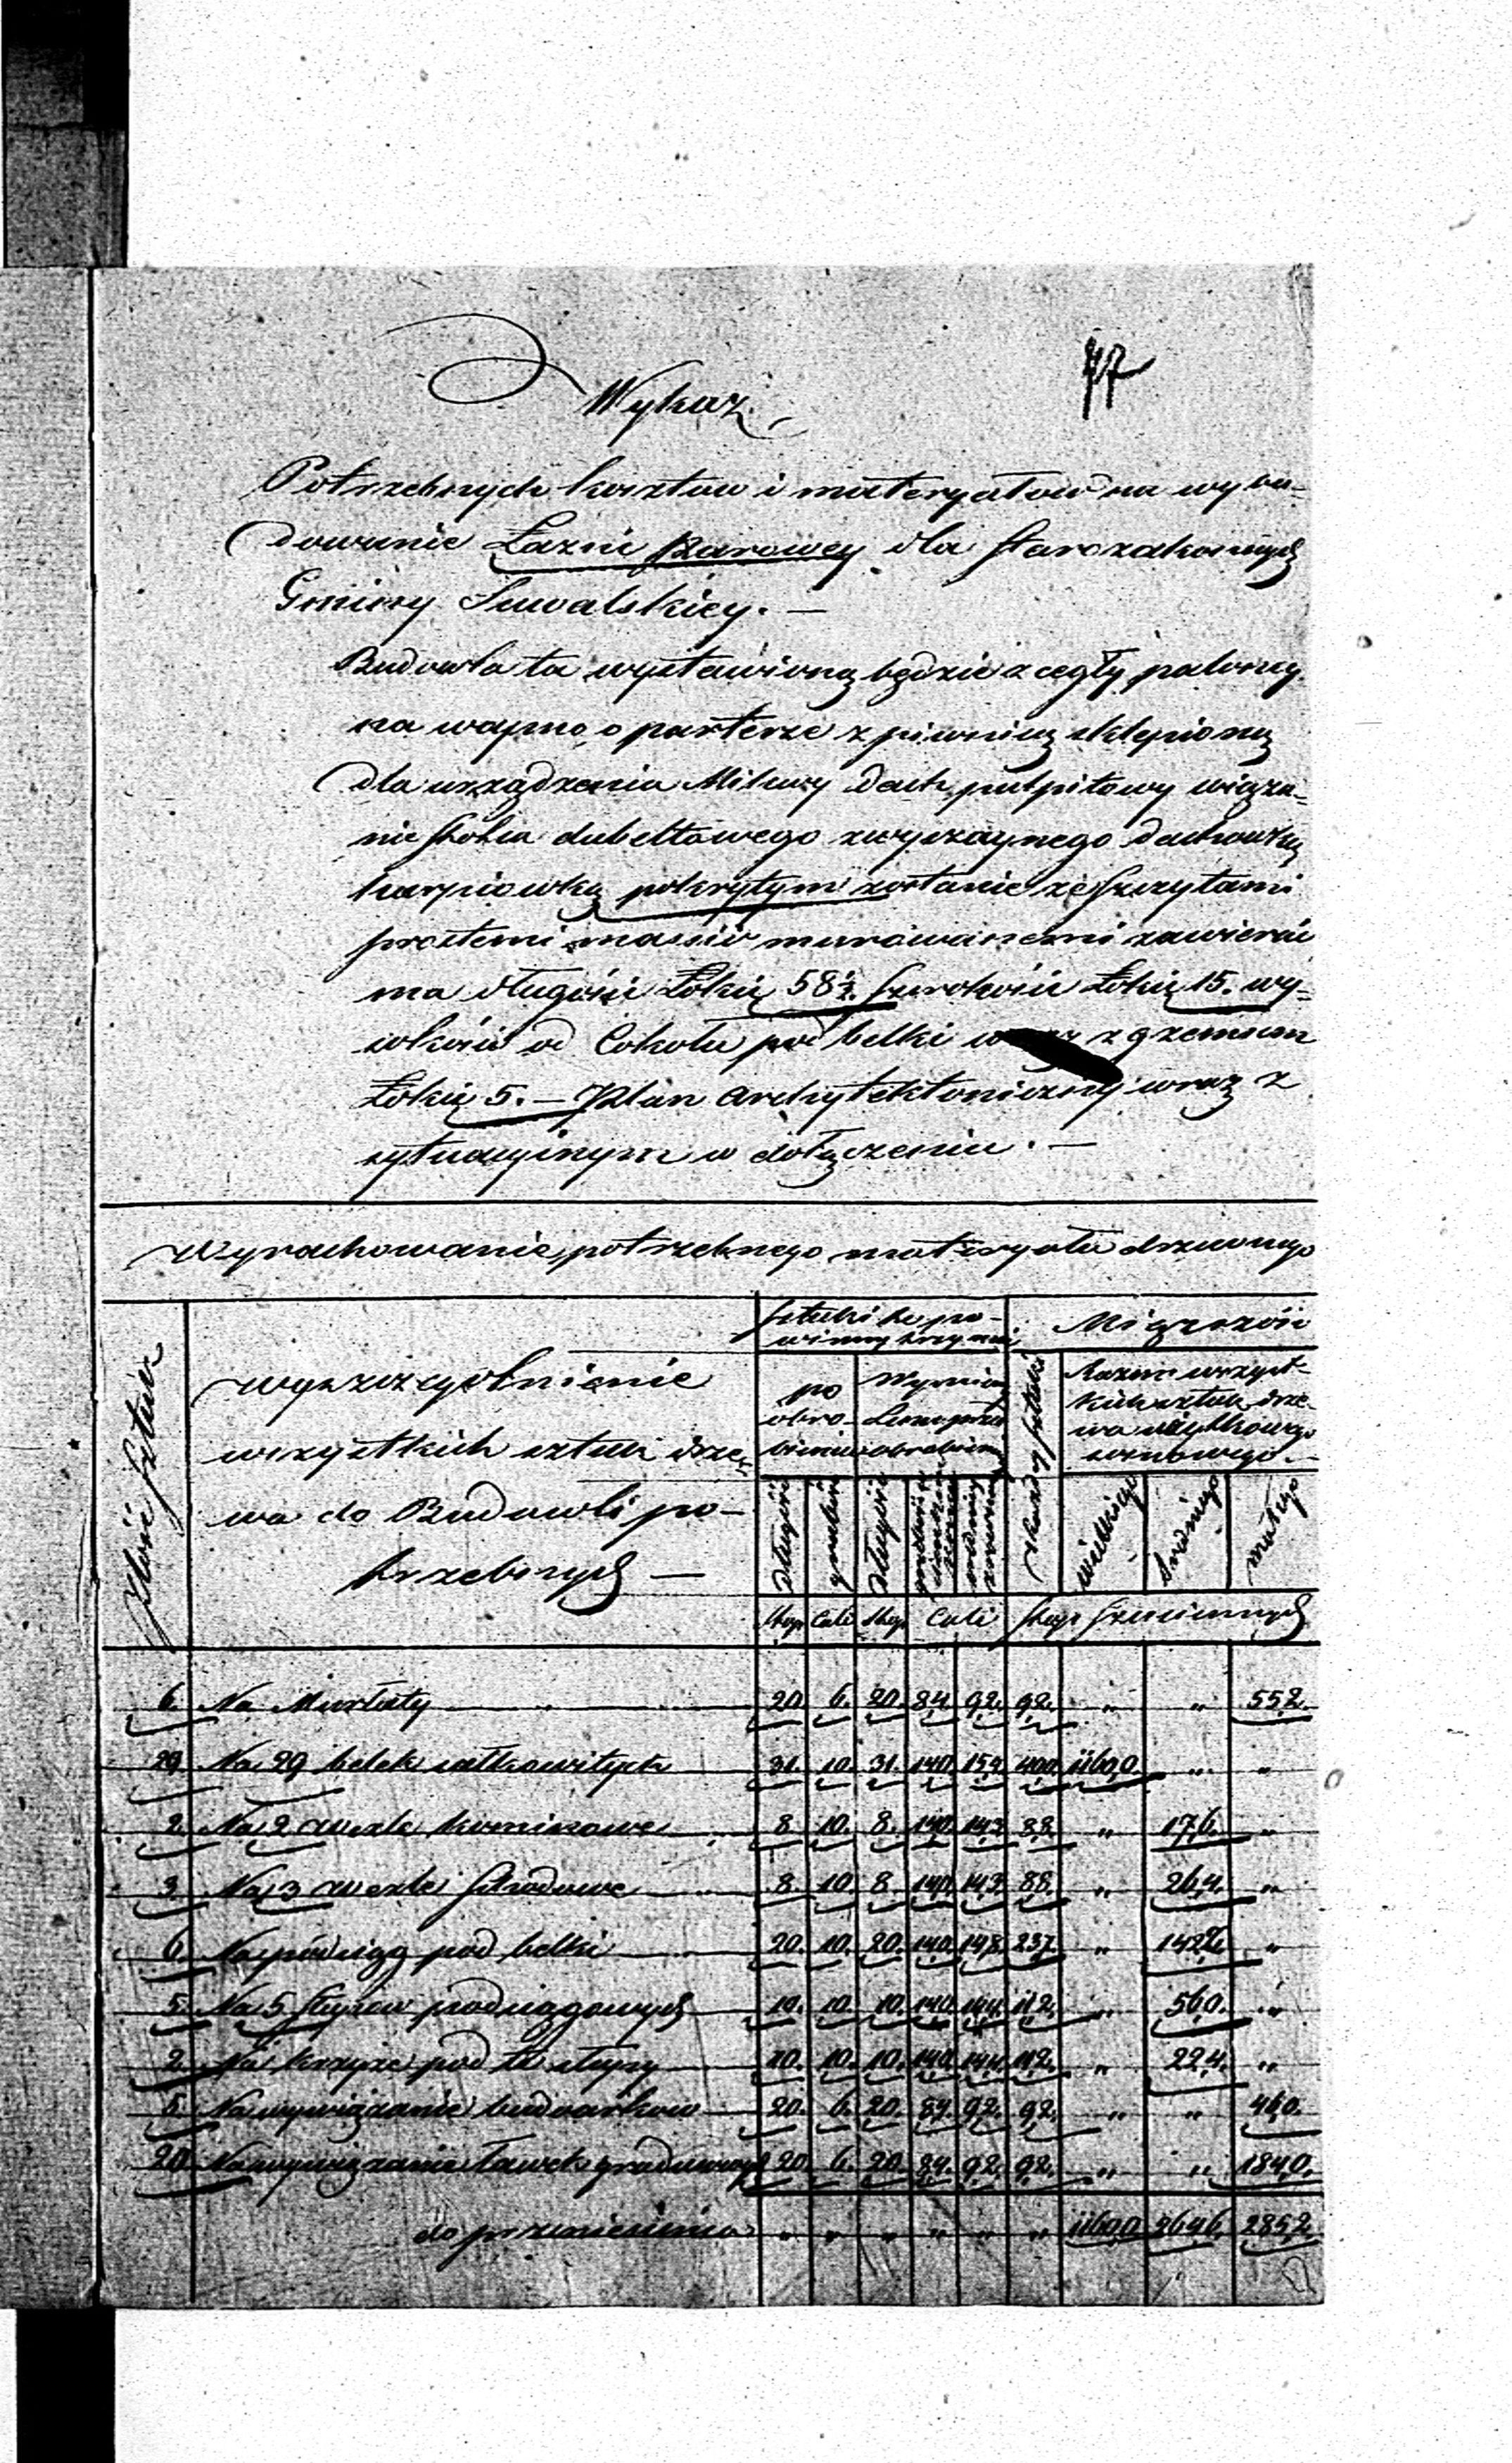 77
Wykaz
Potrzebnych kosztow i materyałow na wybu=
dowanie Łazni Parowey dla Starozakonnych
Gminy Suwalskiey. —
Budowla ta wystawioną będzie z cegły paloney
na wapno o parterze z piwnicą sklepioną
dla urządzenia Mikwy Dach pulpitowy wiąza=
nia stolca dubeltowego zwyczaynego dachówką
karpiowką pokrytym zostanie ze szczytami
prostemi massiv murowanemi zawierać
ma długości Łokci 58½. szerokości Łokci 15. wy=
sokości od Cokołu pod belki z gzemsem
Łokci 5. — Plan Architektoniczny wraz z
sytuacyinym w dołączeniu. —
Wyrachowanie potrzebnego materyału drzewnego
Ilość sztuk
wyszczegolnienie
wszystkich sztuk drze=
wa do Budowli po-
trzebnych —
Sztuki te po-
winny trzymać
po
obro-
bieniu
Wymiar
obrobieniem
Długości
grubości
Długości
Stop Cali Stop Cali
Miąższość
każdy sztuki
Razem wszyst-
kich sztuk drze-
wa użytkowego
wielkiego
średniego
małego
Stop Sześciennych
6. Na Murłaty 20. 6. 20. 8,4. 9,2. 9,2. " " 55,2.
29 Na 29 belek całkowitych 31. 10. 31. 14,0. 15,4. 40,0. 1160,0. " "
2. Na 2 wexle kominowe 8. 10. 8. 14,0. 14,3. 8,8. " 17,6. "
3. Na 3 wexle schodowe 8. 10. 8. 14,0. 14,3. 8,8. " 26,4. "
6. Na podciąg pod belki 20. 10. 20. 14,0. 14,8. 23,7. " 142,2. "
5. Na 5 słupow podciągowych 10. 10. 10. 14,0. 14,4. 11,2. " 56,0. "
2. Na krzyże pod te słupy 10. 10. 10. 14,0. 14,4. 11,2. " 22,4. "
5. Na wywiązanie 20. 6. 20. 8,4. 9,2. 9,2. " " 46,0.
20 Na wywiązanie ławek 20. 6. 20. 8,4. 9,2. 9,2. " " 184,0.
do przeniesienia " " " " " " 1160,0 264,6. 285,2.